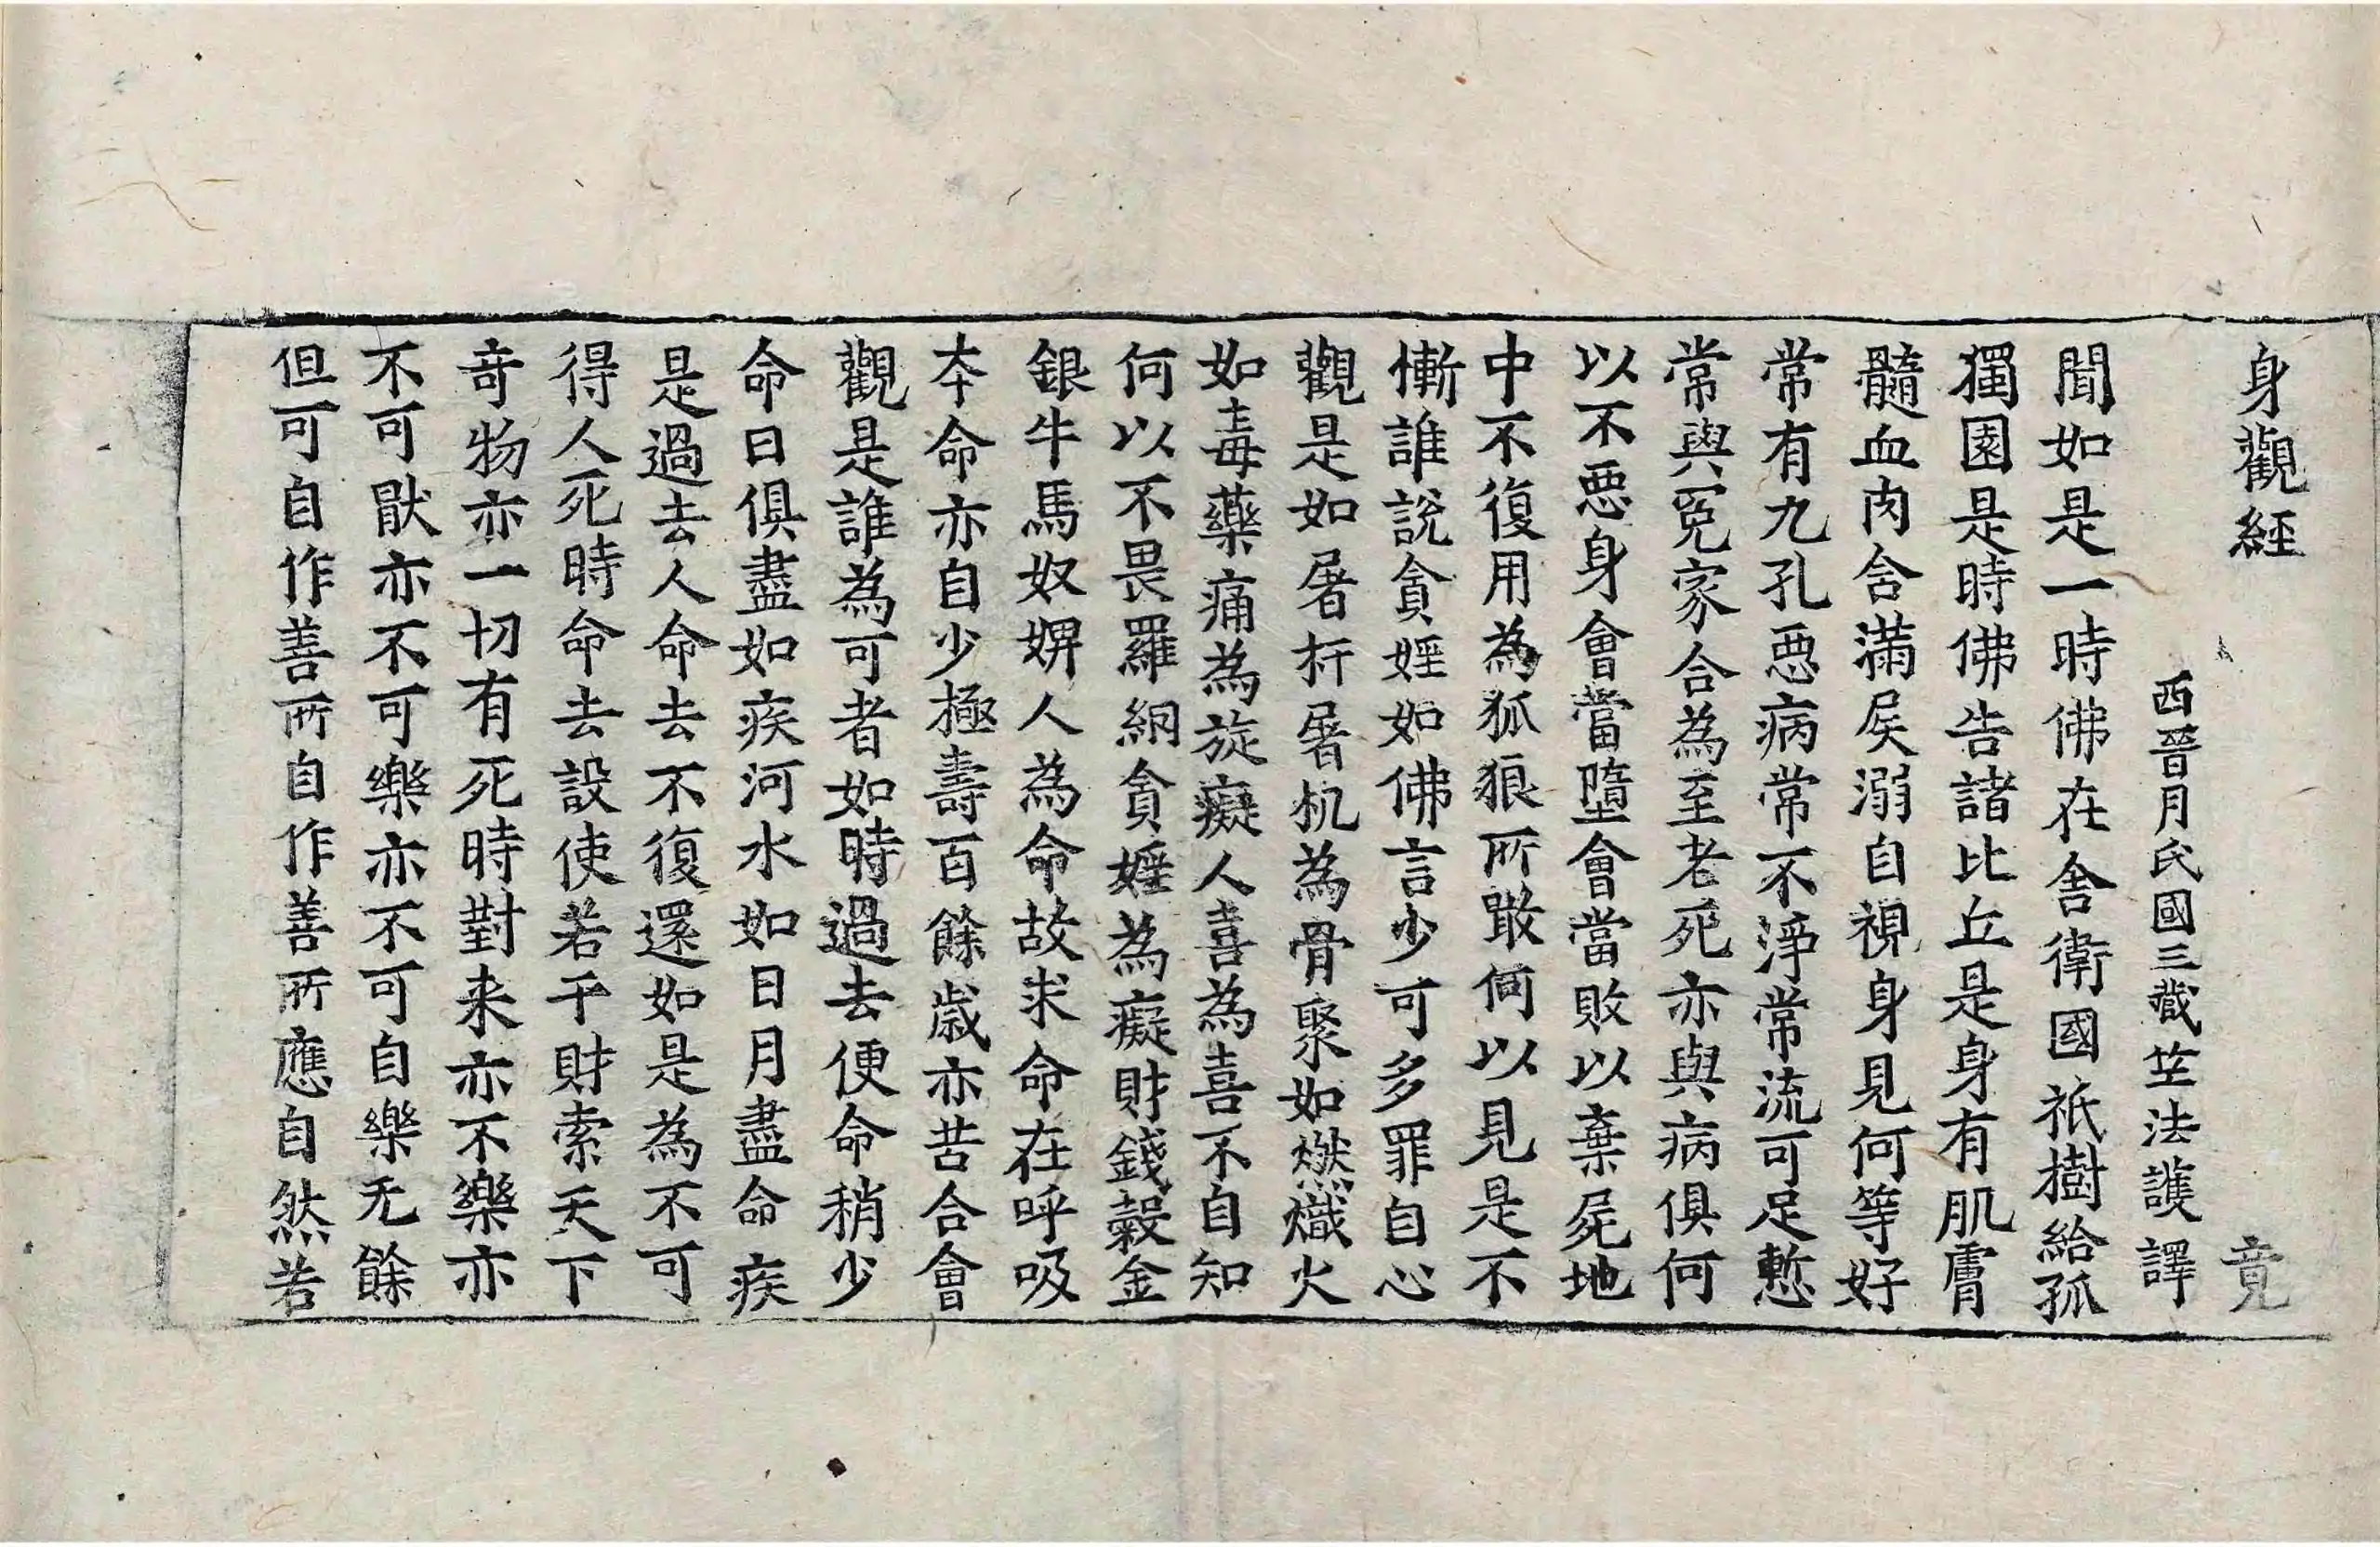 身觀經　竟
西晉月氏國三藏竺法護譯
聞如是一時佛在舍衛國祇樹給孤
獨園是時佛告諸比丘是身有肌膚
髓血肉含滿屎溺自視身見何等好
常有九孔惡病常不淨常流可足慙
常與冤家合為至老死亦與病俱何
以不惡身會當墮會當敗以棄屍地
中不復用為狐狼所噉何以見是不
慚誰說貪婬如佛言少可多罪自心
觀是如屠杅屠机為骨聚如燃熾火
如毒藥痛為旋癡人喜為喜不自知
何以不畏羅網貪婬為癡財錢穀金
銀牛馬奴婢人為命故求命在呼吸
本命亦自少極壽百餘歲亦苦合會
觀是誰為可者如時過去便命稍少
命日俱盡如疾河水如日月盡命疾
是過去人命去不復還如是為不可
得人死時命去設使若干財索天下
奇物亦一切有死時對来亦不樂亦
不可猒亦不可樂亦不可自樂无餘
但可自作善所自作善所應自然若